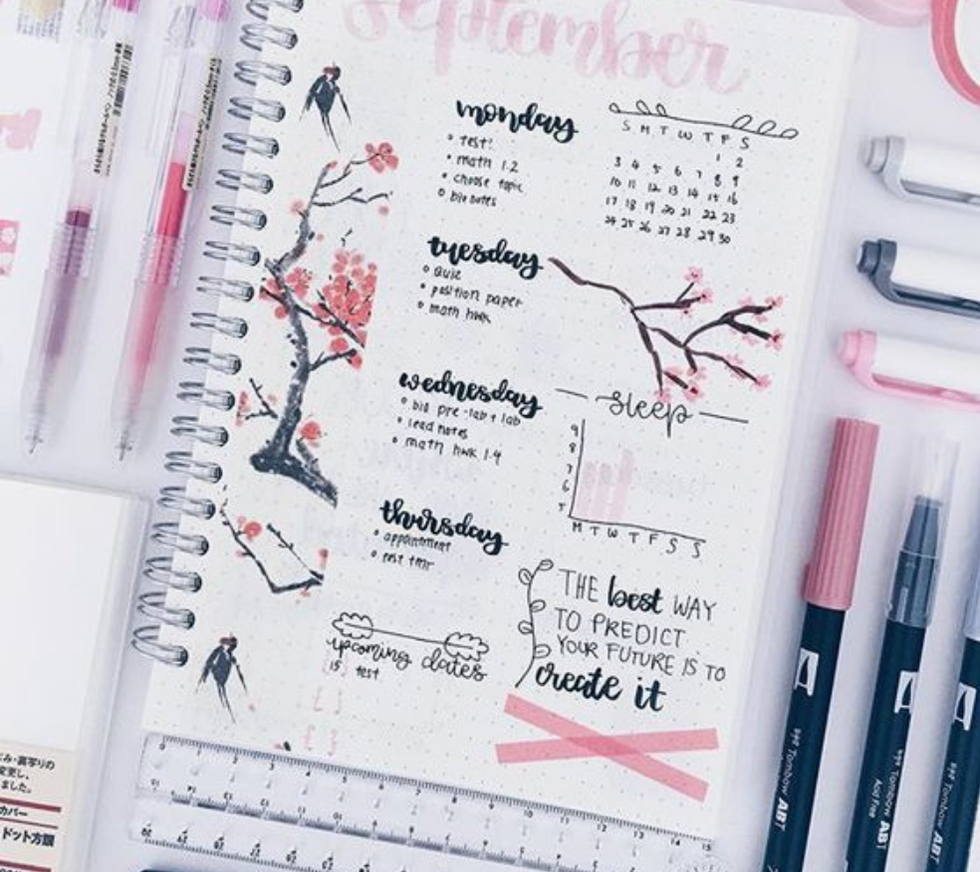 September
monday
test!
math 1.2
choose topic
bio notes
S M T W T F S
1 2
3 4 5 6 7 8 9
10 11 12 13 14 15 16
17 18 19 20 21 22 23
24 25 26 27 28 29 30
tuesday
quiz
position paper
math hwk
wednesday
bio pre-lab + lab
lead notes
math hwk 1.4
sleep
9
8
7
6
M T W T F S S
thursday
appointment
test tmr
upcoming dates
[15] test
THE best WAY
TO PREDICT
YOUR FUTURE IS TO
create it
Tombow ABT
Tombow ABT
Acid Free
Tombow ABT
ドット方眼
カバー
0 1 2 3 4 5 6 7 8 9 10 11 12 13 14 15